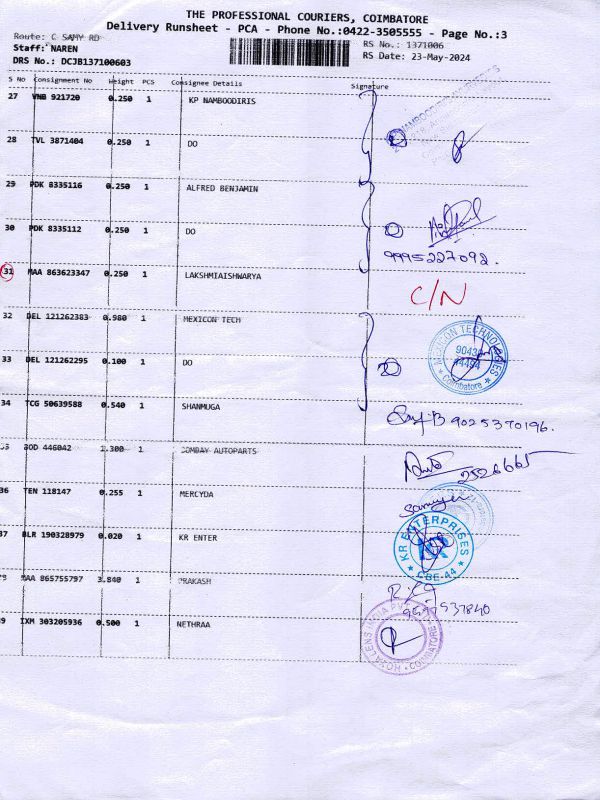 THE PROFESSIONAL COURIERS, COIMBATORE
Delivery Runsheet - PCA - Phone No.:0422-3505555 - Page No.:3
Route: C SAMY RD
Staff: NAREN
DRS No.: DCJB137100603
RS No.: 1371006
RS Date: 23-May-2024
S No Consignment No Weight PCS Consignee Details Signature
27 VNB 921720 0.250 1 KP NAMBOODIRIS
28 TVL 3871404 0.250 1 DO
29 PDK 8335116 0.250 1 ALFRED BENJAMIN
30 PDK 8335112 0.250 1 DO
9995227092.
31 MAA 863623347 0.250 1 LAKSHMIAISHWARYA
C/N
32 DEL 121262383 0.980 1 MEXICON TECH
MEXICON TECHNOLOGIES
Coimbatore
33 DEL 121262295 0.100 1 DO
34 TCG 50639588 0.540 1 SHANMUGA
9025370196.
BOD 446042 1.300 1 BOMBAY AUTOPARTS
2526665
36 TEN 118147 0.255 1 MERCYDA
37 BLR 190328979 0.020 1 KR ENTER
KR ENTERPRISES
CBE-44
MAA 865755797 3.840 1 PRAKASH
IXM 303205936 0.500 1 NETHRAA
HOYA LENS INDIA PVT
COIMBATORE